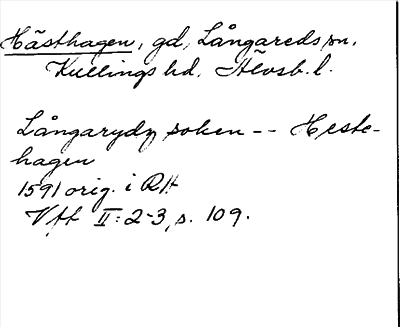 Hästhagen, gd, Långareds sn,
Kullings hd, Älvsb. l.
Långarydz soken -- Heste-
hagen
1591 orig. i RA
Vft II:2-3, s. 109.